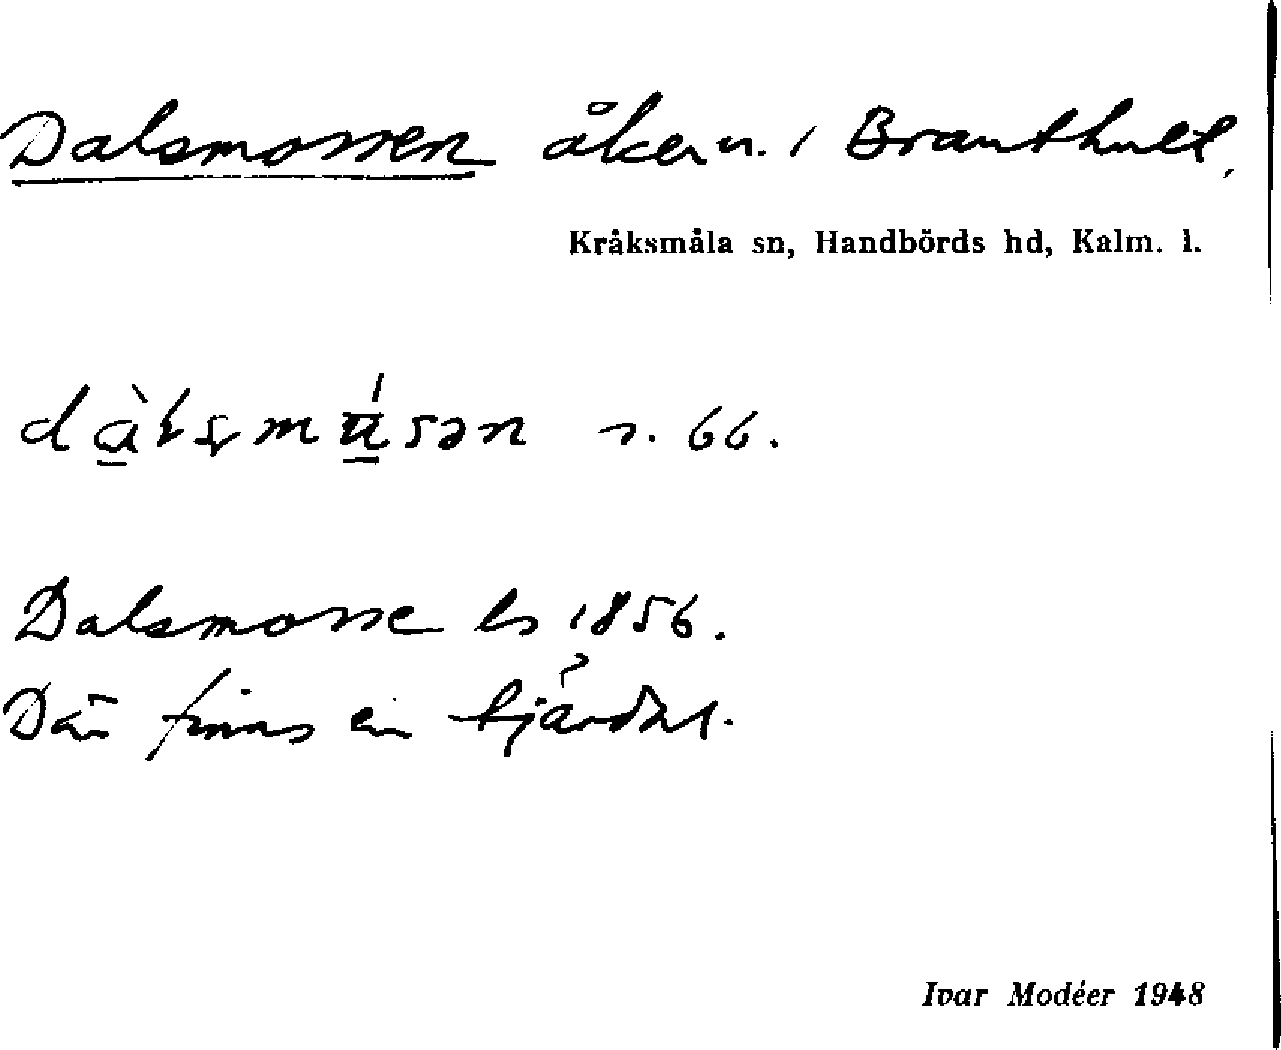 Dalsmossen åkern. i Branthult,
Kråksmåla sn, Handbörds hd, Kalm. l.
n. 66.
Dalsmosse ls 1856.
Där finns en tjärdal.
Ivar Modéer 1948